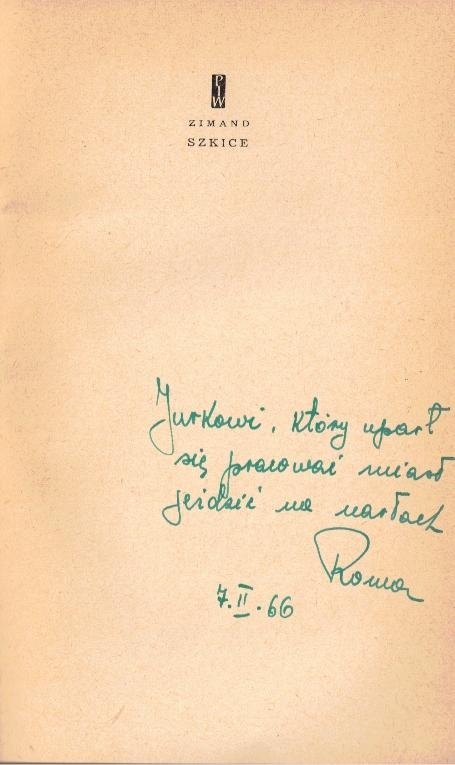 PIW
ZIMAND
SZKICE
Jurkowi, który uparł
się pracować miast
jeździć na nartach
Roman
7.II.66